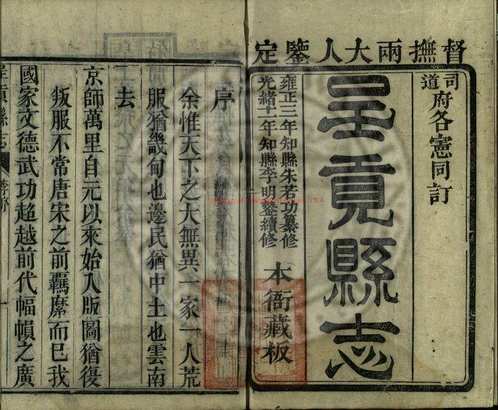 督撫兩大人鑒定
司道府各憲同訂
呈貢縣志
雍正三年知縣朱若功纂修
光緒十一年知縣李明鋆續修
本衙藏板
序
余惟天下之大無異一家一人荒
服猶畿甸也邊民猶中土也雲南
去
京師萬里自元以來始入版圖猶復
叛服不常唐宋之前羈縻而已我
國家文德武功超越前代幅幀之廣
呈貢縣志